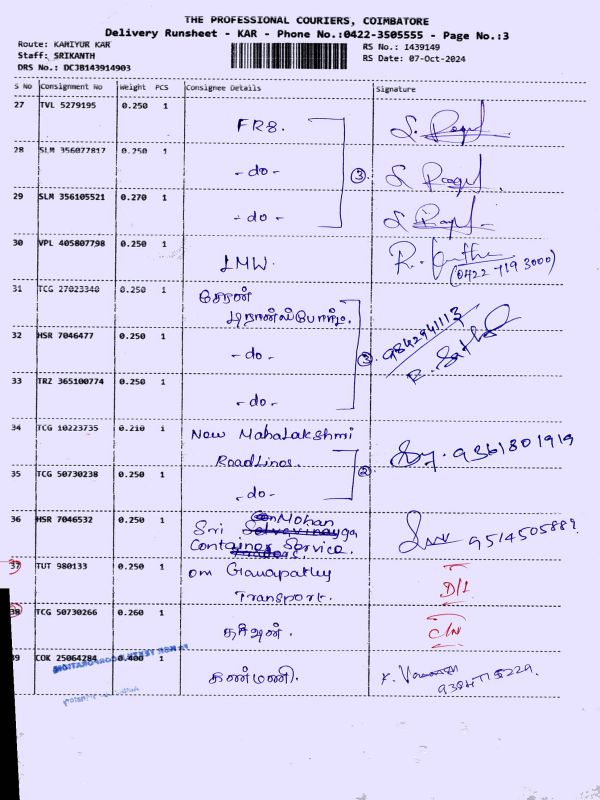 THE PROFESSIONAL COURIERS, COIMBATORE
Delivery Runsheet - KAR - Phone No.:0422-3505555 - Page No.:3
Route: KARIYUR KAR
Staff: SRIKANTH
DRS No.: DCJB143914903
RS No.: 1439149
RS Date: 07-Oct-2024
S No Consignment No Weight PCS Consignee Details Signature
27 TVL 5279195 0.250 1 FR8.
28 SLM 356077817 0.250 1 -do- ③
29 SLM 356105521 0.270 1 -do-
30 VPL 405807798 0.250 1 LMW.
(0422 719 3000)
31 TCG 27023340 0.250 1 சேரன்
32 HSR 7046477 0.250 1 -do- ③ 9842941113
33 TRZ 365100774 0.250 1 -do-
34 TCG 10223735 0.210 1 New Mahalakshmi
RoadLines. ② 9361801919
35 TCG 50730238 0.250 1 -do-
36 HSR 7046532 0.250 1 Mohan
Sri
Container Service.
37 TUT 980133 0.250 1 om Ganapathy
Transport. D/L
38 TCG 50730266 0.260 1 C/N
39 COK 25064284 0.400 1 கண்மணி.